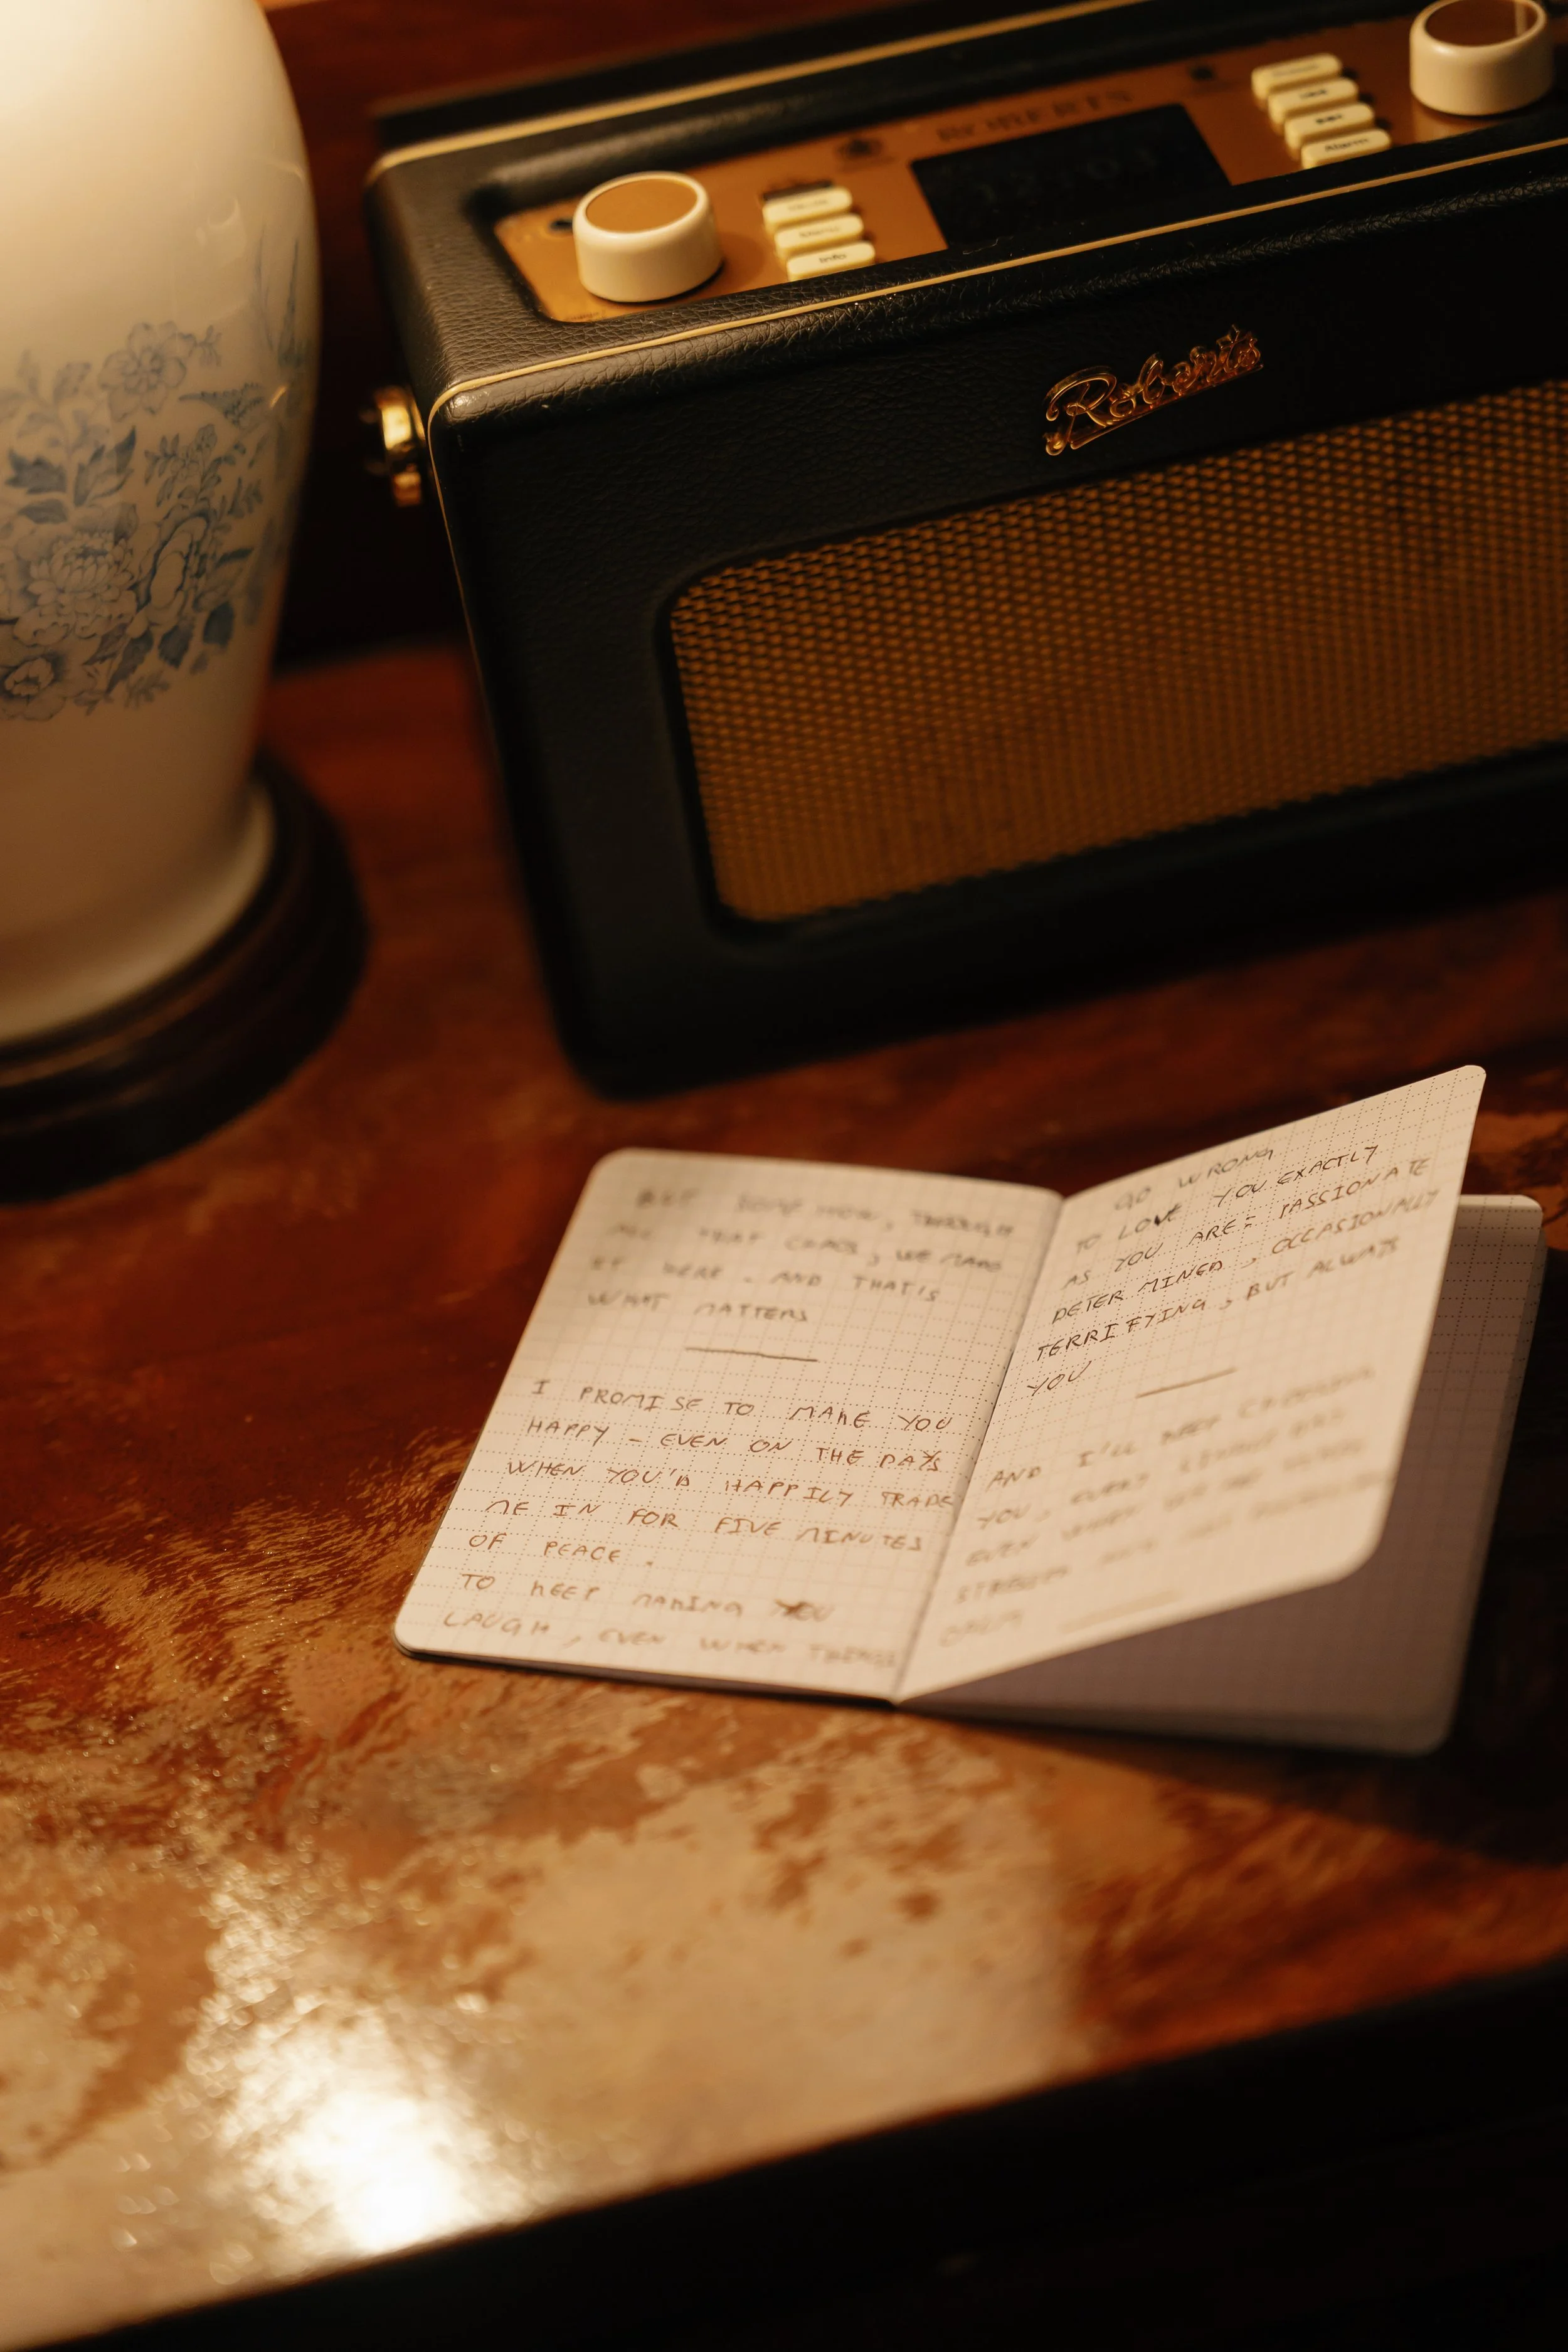 ROBERTS
Info
Alarm
Roberts
BUT SOMEHOW, THROUGH
ALL THAT CHAOS, WE MADE
IT HERE. AND THAT'S
WHAT MATTERS
I PROMISE TO MAKE YOU
HAPPY - EVEN ON THE DAYS
WHEN YOU'D HAPPILY TRADE
ME IN FOR FIVE MINUTES
OF PEACE.
TO KEEP MAKING YOU
LAUGH, EVEN WHEN THINGS
GO WRONG
TO LOVE YOU EXACTLY
AS YOU ARE: PASSIONATE
DETERMINED, OCCASIONALLY
TERRIFYING, BUT ALWAYS
YOU
AND I'LL KEEP CHOOSING
YOU, EVERY
EVEN WHEN